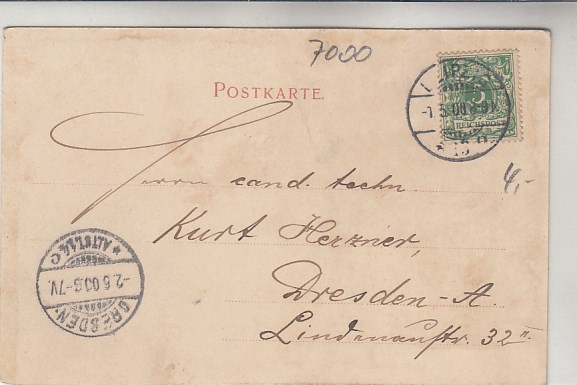 7000
POSTKARTE.
5
REICHSPOST
4,-
Herrn cand. techn.
Kurt Herzner,
Dresden-A.
Lindenaustr. 32 II.
DRESDEN-
ALTST.
-2.5.00.6-7V.